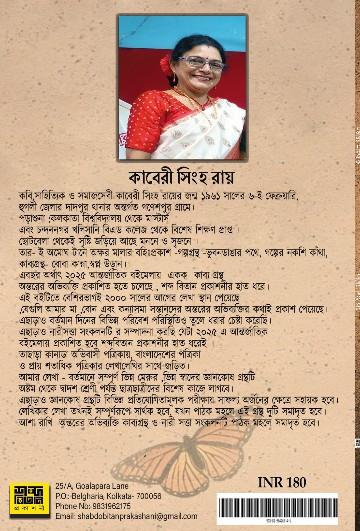 কাবেরী সিংহ রায়
কবি,সাহিত্যিক ও সমাজসেবী কাবেরী সিংহ রায়ের জন্ম ১৯৬১ সালের ৬-ই ফেব্রুয়ারি,
হুগলী জেলার দাদপুর থানার অন্তর্গত গণেশপুর গ্রামে।
পড়াশুনা :কলকাতা বিশ্ববিদ্যালয় থেকে মাস্টার্স
এবং চন্দননগর খলিসানি বিএড কলেজ থেকে বিশেষ শিক্ষণ প্রাপ্ত ।
ছোটবেলা থেকেই সৃষ্টি জড়িয়ে আছে মননে ও সৃজনে ।
তার- ই অমোঘ টানে অক্ষর মালার বহিঃপ্রকাশ -গল্পগ্রন্থ -ভুবনডাঙার পথে, গল্পের নকশি কাঁথা,
কাব্যগ্রন্থ- বোবা কান্না,স্বপ্ন উড়ান।
এবছর অর্থাৎ ২০২৫ আন্তর্জাতিক বইমেলায় একক কাব্য গ্রন্থ
অন্তরের অভিব্যক্তি প্রকাশিত হতে চলেছে , শব্দ বিতান প্রকাশনীর হাত ধরে।
এই বইটিতে বেশিরভাগই ২০০০ সালের আগের লেখা স্থান পেয়েছে
,যেগুলি আমার মা ,বোন এবং কন্যাসমা সন্তানদের অন্তরের অভিব্যক্তির কথাই প্রকাশ পেয়েছে।
এছাড়াও বর্তমান দিনের বিভিন্ন পরিবেশ পরিস্থিতিও তুলে ধরার চেষ্টা করেছি।
এছাড়াও নারীসত্তা সংকলনটি র সম্পাদনা করছি যেটা ২০২৫ এ আন্তর্জাতিক
বইমেলায় প্রকাশিত হবে শব্দবিতান প্রকাশনীর হাত ধরেই
তাছাড়া কানাড অভিবাসী পত্রিকায়, বাংলাদেশের পত্রিকা
ও প্রায় শতাধিক পত্রিকার লেখালেখির সাথে জড়িত।
আমার লেখা - বর্তমানে সম্পূর্ণ ভিন্ন মেরুর ,ভিন্ন স্বাদের জ্ঞানকোষ গ্রন্থটি
অষ্টম থেকে দ্বাদশ শ্রেণী পর্যন্ত ছাত্রছাত্রীদের বিশেষ কাজে লাগবে।
এছাড়াও জ্ঞানকোষ গ্রন্থটি বিভিন্ন প্রতিযোগিতামূলক পরীক্ষায় সাফল্য অর্জনের ক্ষেত্রে সহায়ক হবে।
লেখিকার লেখা তখনই সম্পূর্ণরূপে সার্থক হবে, যখন পাঠক মহলে এই গ্রন্থ দুটি সমাদৃত হবে।
আশা রাখি অন্তরের অভিব্যক্তি কাব্যগ্রন্থ ও নারী সত্তা সংকলনটি পাঠক মহলে সমাদৃত হবে।
INR 180
শব্দ
বিতান
প্রকাশনী
25/A, Goalapara Lane
P.O: Belgharia, Kolkata- 700056
Phone No: 9831962175
Email: shabdobitanprakashani@gmail.com